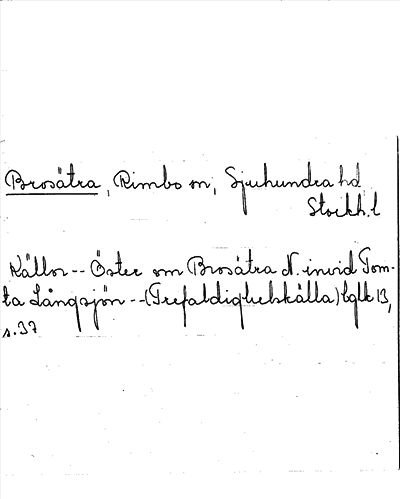 Brosätra, Rimbo sn, Sjuhundra hd
Stockh. l
Källor -- Öster om Brosätra N. invid Tom-
ta Långsjön -- (Trefaldighetskälla) bglk 13,
s. 37